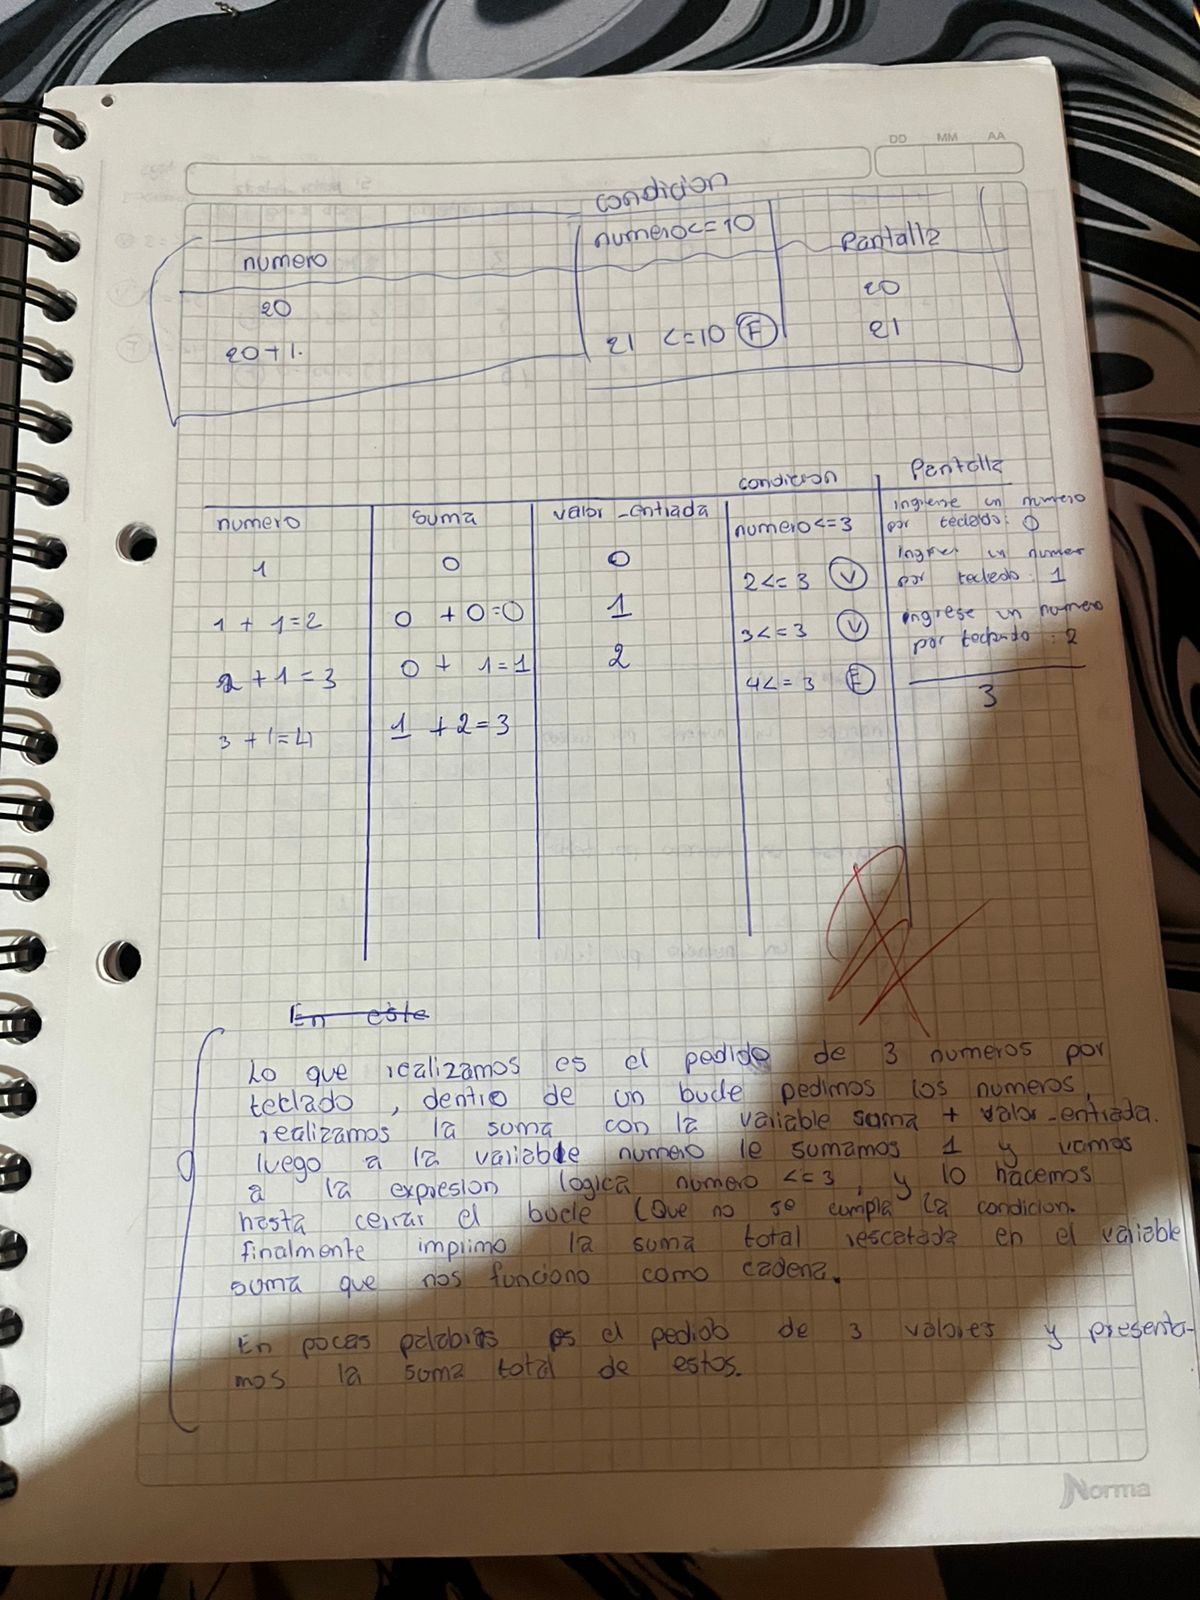 DD MM AA
condicion
numero numero<=10 Pantalla
20 20
20+1. 21 <=10 F 21
condicion Pantalla
numero suma valor_entrada numero<=3 ingrese un numero
por teclado: 0
1 0 0 2<=3 V ingrese un numero
por teclado: 1
1 + 1=2 0 +0=0 1 3<=3 V ingrese un numero
por teclado: 2
2 +1=3 0 + 1=1 2 4<=3 F
3
3 +1=4 1 +2=3
En este
Lo que realizamos es el pedido de 3 numeros por
teclado, dentro de un bucle pedimos los numeros,
realizamos la suma con la variable suma + valor_entrada.
luego a la variable numero le sumamos 1 y vamos
a la expresion logica numero <=3, y lo hacemos
hasta cerrar el bucle (Que no se cumpla la condicion.
finalmente imprimo la suma total rescatada en el variable
suma que nos funciono como cadena.
En pocas palabras es el pediob de 3 valores y presenta-
mos la suma total de estos.
Norma